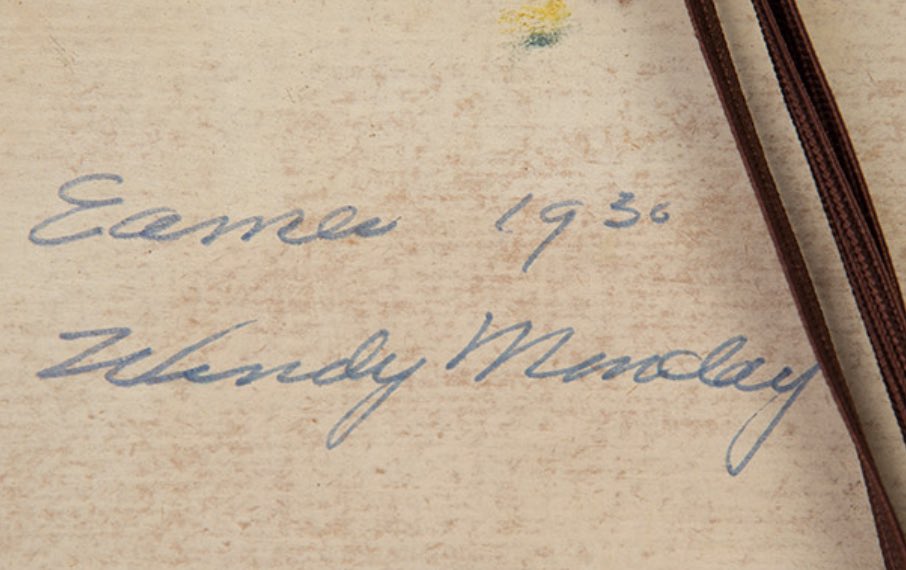 Eames 1930
Windy Monday